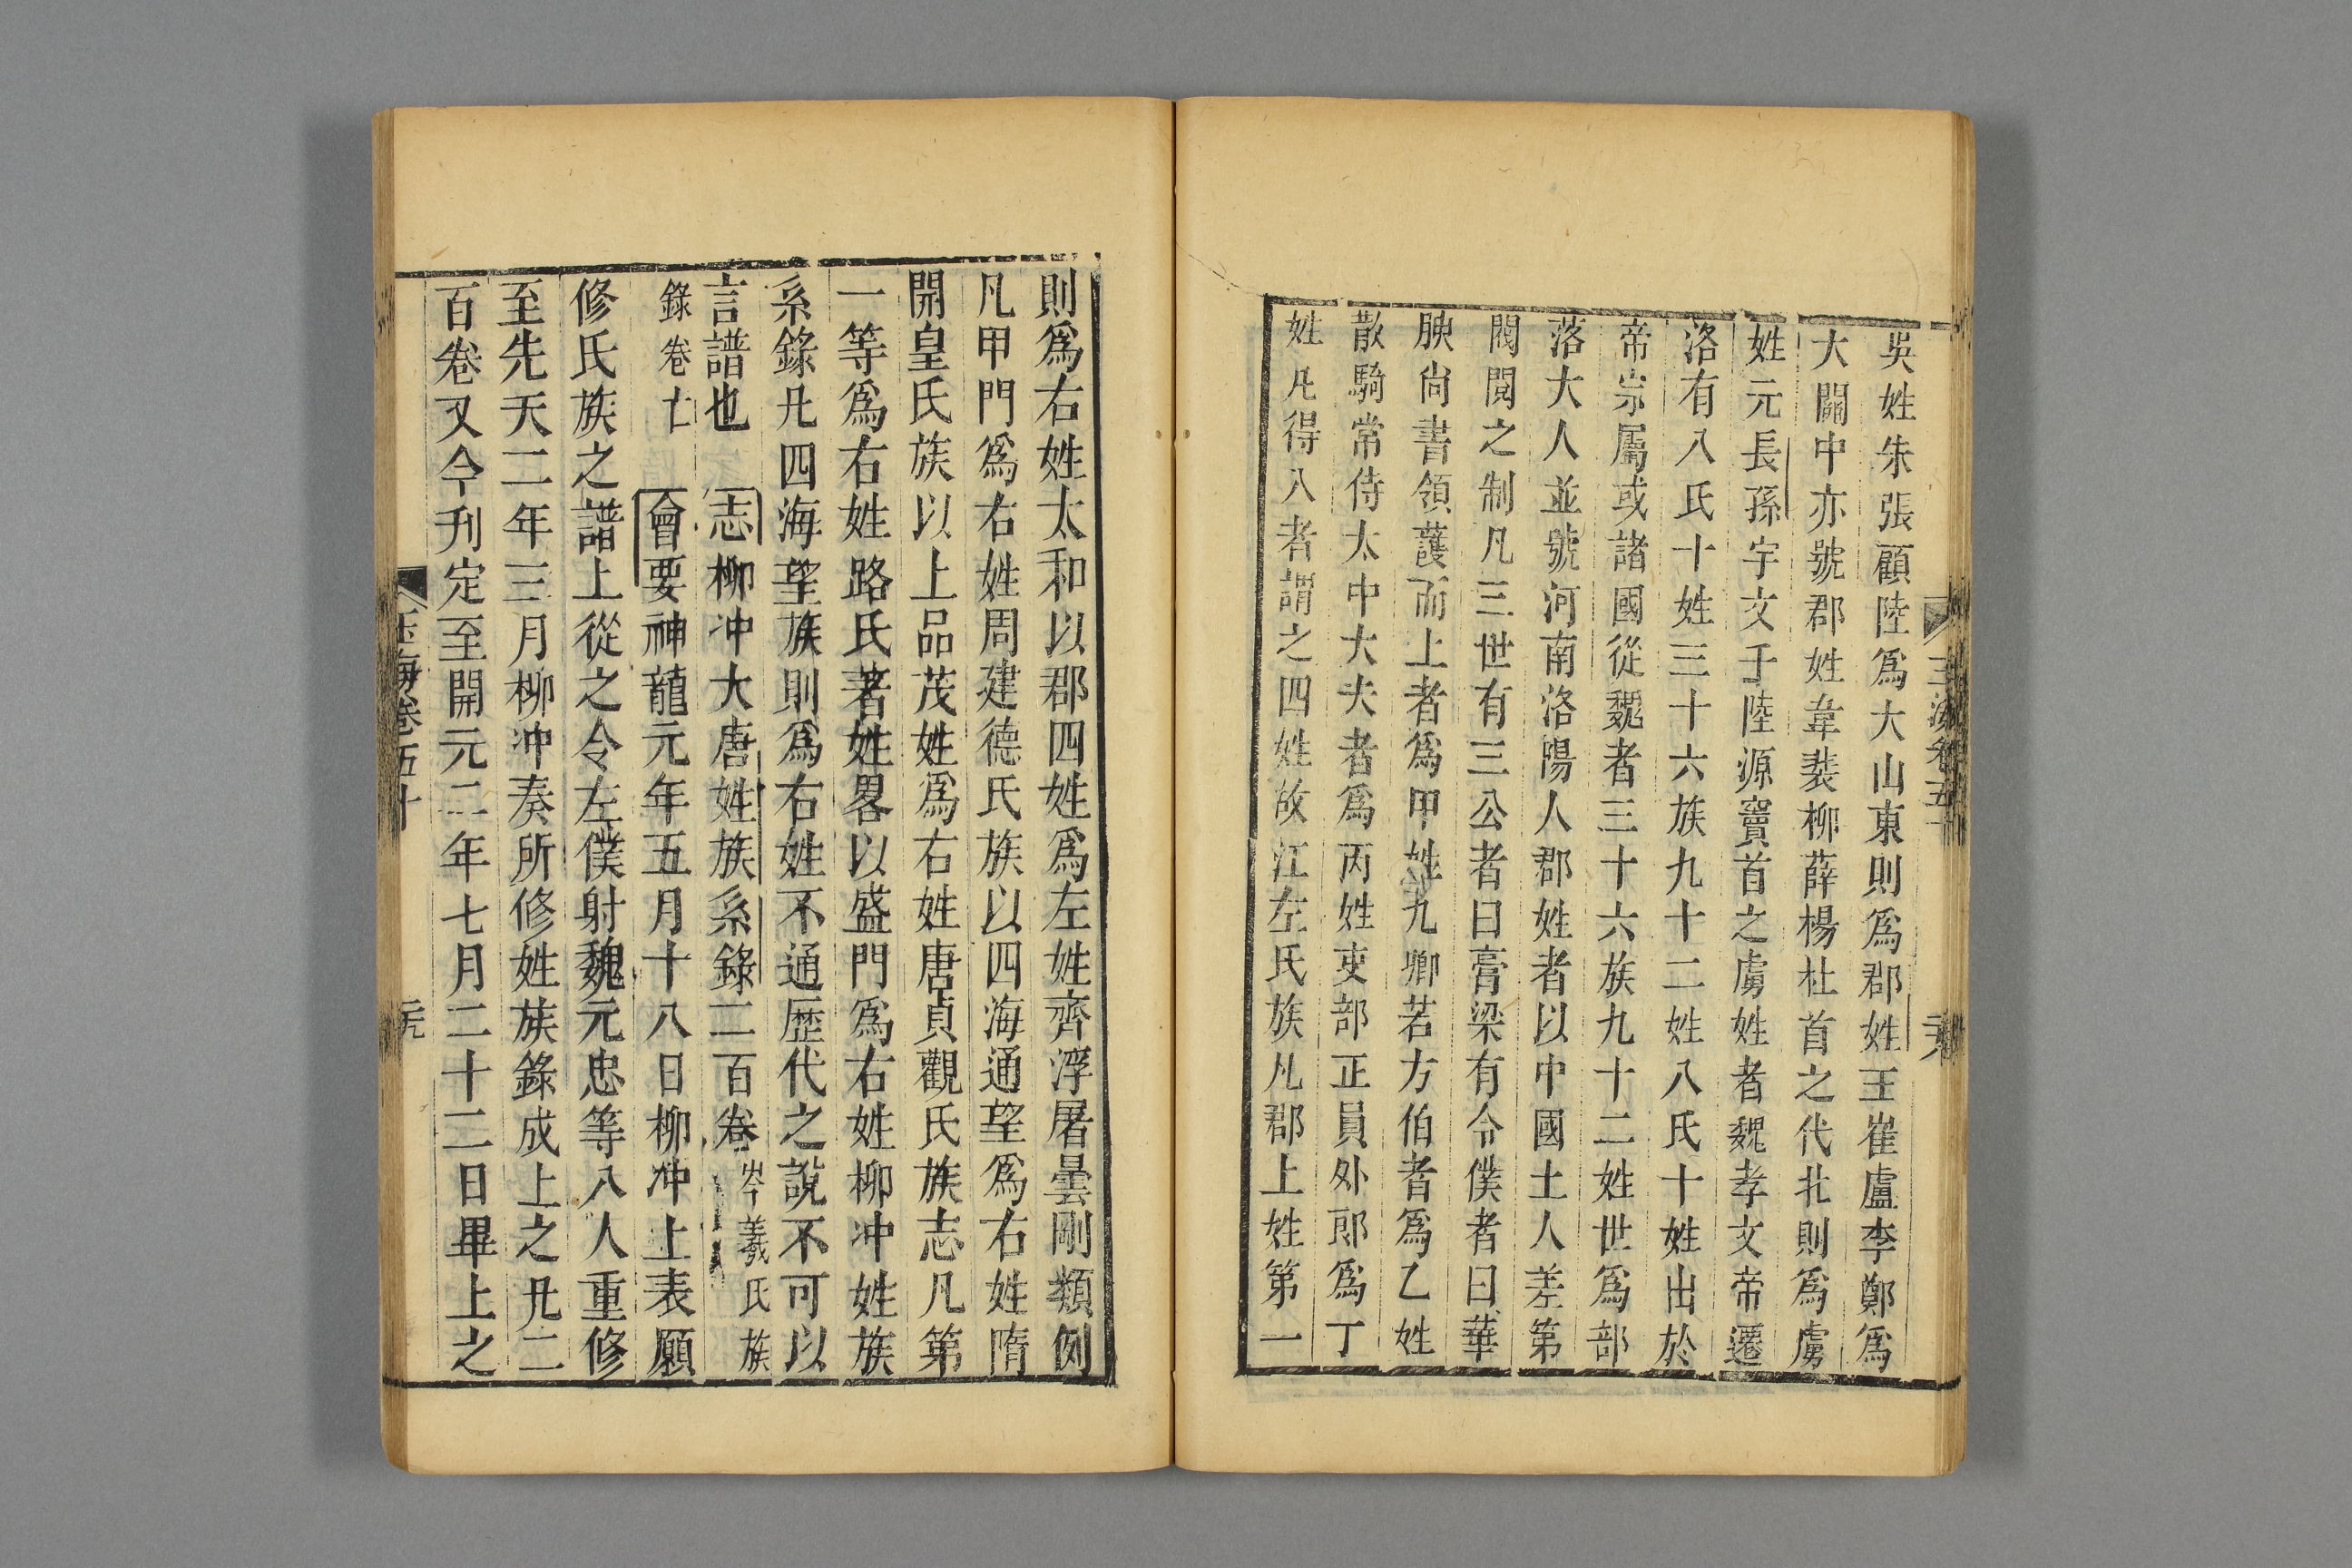 吳姓朱張顧陸爲大山東則爲郡姓王崔盧李鄭爲
大關中亦號郡姓韋裴柳薛楊杜首之代北則爲虜
姓元長孫宇文于陸源竇首之虜姓者魏孝文帝遷
洛有八氏十姓三十六族九十二姓八氏十姓出於
帝宗屬或諸國從魏者三十六族九十二姓世爲部
落大人並號河南洛陽人郡姓者以中國士人差第
閥閱之制凡三世有三公者曰膏梁有令僕者曰華
腴尙書領護而上者爲甲姓九卿若方伯者爲乙姓
散騎常侍太中大夫者爲丙姓吏部正員外郎爲丁
姓凡得入者謂之四姓故江左氏族凡郡上姓第一
則爲右姓太和以郡四姓爲左姓齊浮屠曇剛類例
凡甲門爲右姓周建德氏族以四海通望爲右姓隋
開皇氏族以上品茂姓爲右姓唐貞觀氏族志凡第
一等爲右姓路氏著姓畧以盛門爲右姓柳沖姓族
系錄凡四海望族則爲右姓不通歷代之說不可以
言譜也 志柳沖大唐姓族系錄二百卷岑羲氏族
錄卷亡 會要神龍元年五月十八日柳沖上表願
修氏族之譜上從之令左僕射魏元忠等八人重修
至先天二年三月柳沖奏所修姓族錄成上之凡二
百卷又令刊定至開元二年七月二十二日畢上之
玉海卷五十